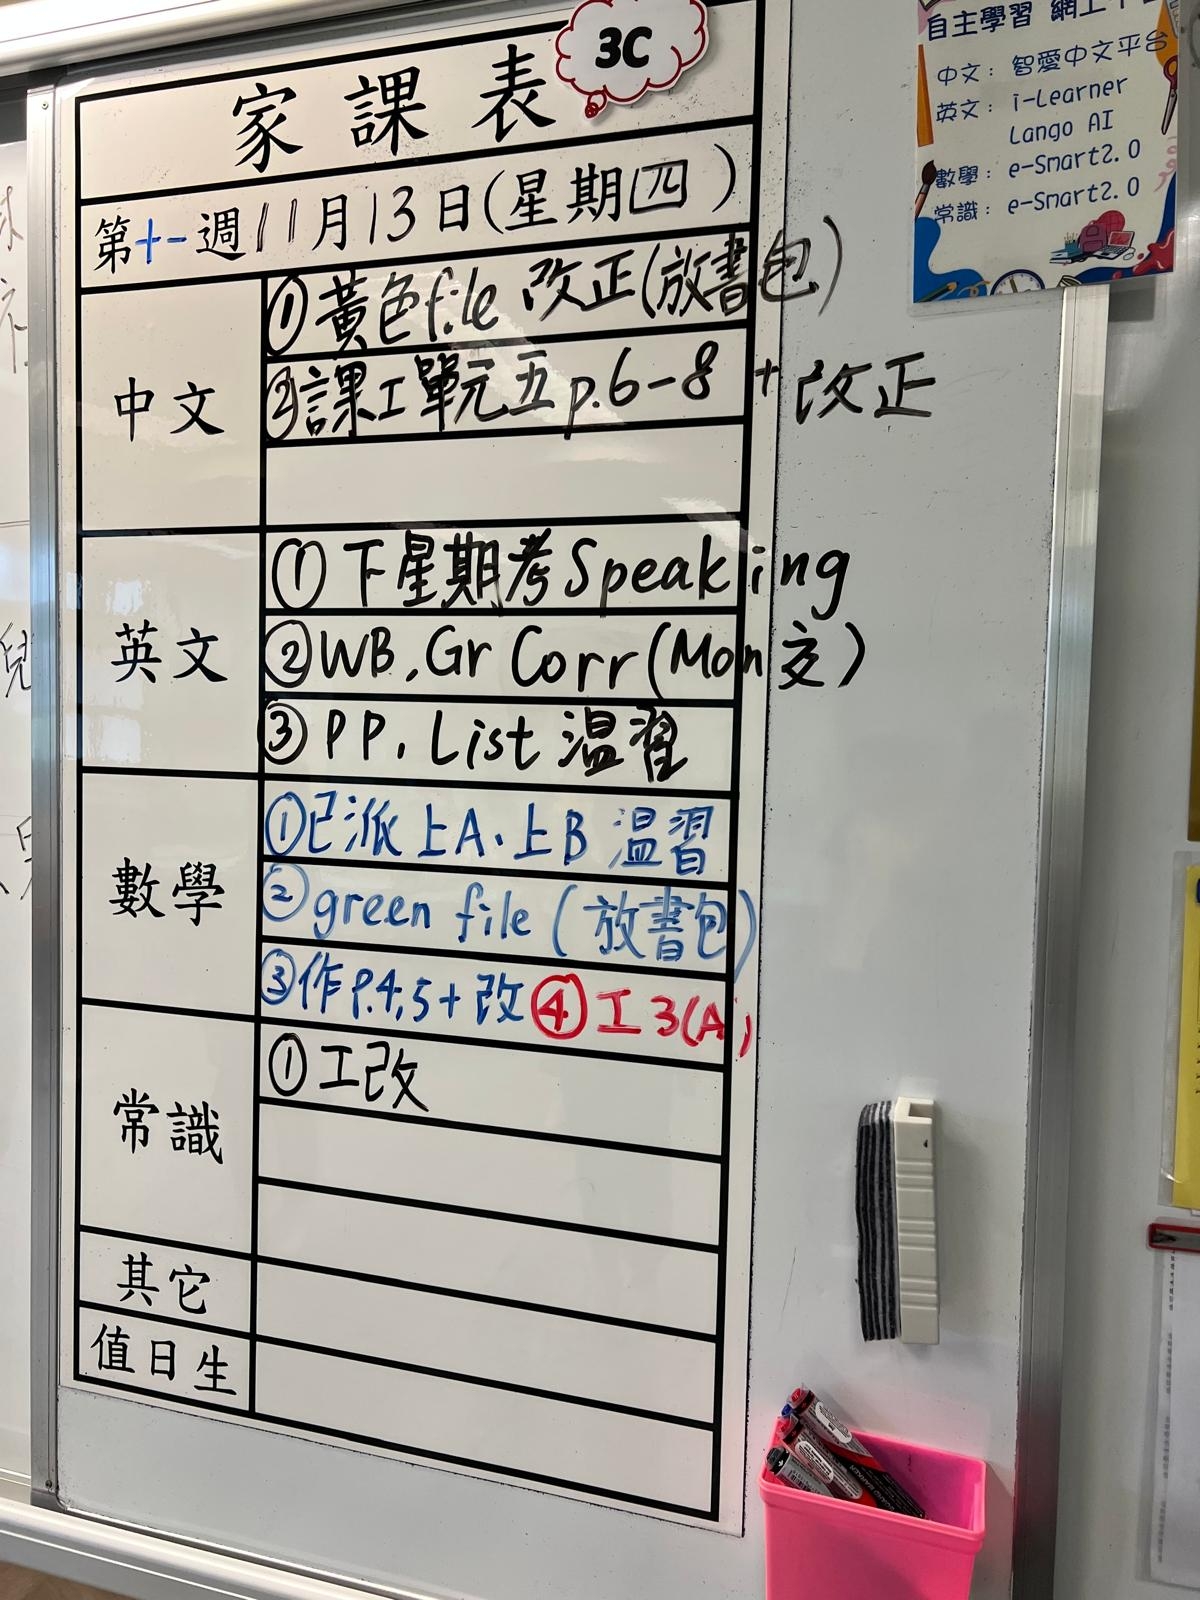 家課表
3C
第十一週11月13日(星期四)
中文
①黃色file 改正(放書包)
②課工單元五p.6-8 +改正
英文
①下星期考Speaking
②WB, Gr Corr (Mon交)
③PP, List 溫習
數學
①已派上A、上B 溫習
②green file (放書包)
③作P.4,5+改 ④工3(A)
常識
①工改
其它
值日生
自主學習 網上
中文：智愛中文平台
英文：i-Learner
Lango AI
數學：e-Smart2.0
常識：e-Smart2.0